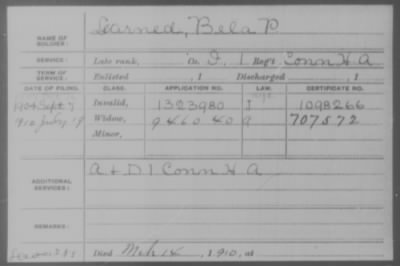 NAME OF SOLDIER: Learned, Bela P
SERVICE: Late rank, Co. D, 1 Reg't Conn H A
TERM OF SERVICE: Enlisted , 1 Discharged , 1
DATE OF FILING. CLASS. APPLICATION NO. LAW. CERTIFICATE NO.
1904 Sept 7 Invalid, 1323980 1098266
1910 Widow, 946040 707572
Minor,
ADDITIONAL SERVICES: A & D 1 Conn H A
REMARKS:
Died Mch 14, 1910, at